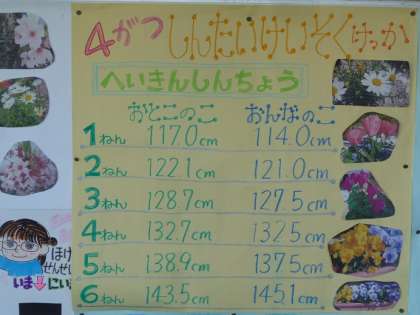 4がつ しんたいけいそくけっか
へいきんしんちょう
おとこのこ おんなのこ
1ねん 117.0cm 114.0cm
2ねん 122.1cm 121.0cm
3ねん 128.7cm 127.5cm
4ねん 132.7cm 132.5cm
5ねん 138.9cm 137.5cm
6ねん 143.5cm 145.1cm
ほけ
せんせい
いま
にい